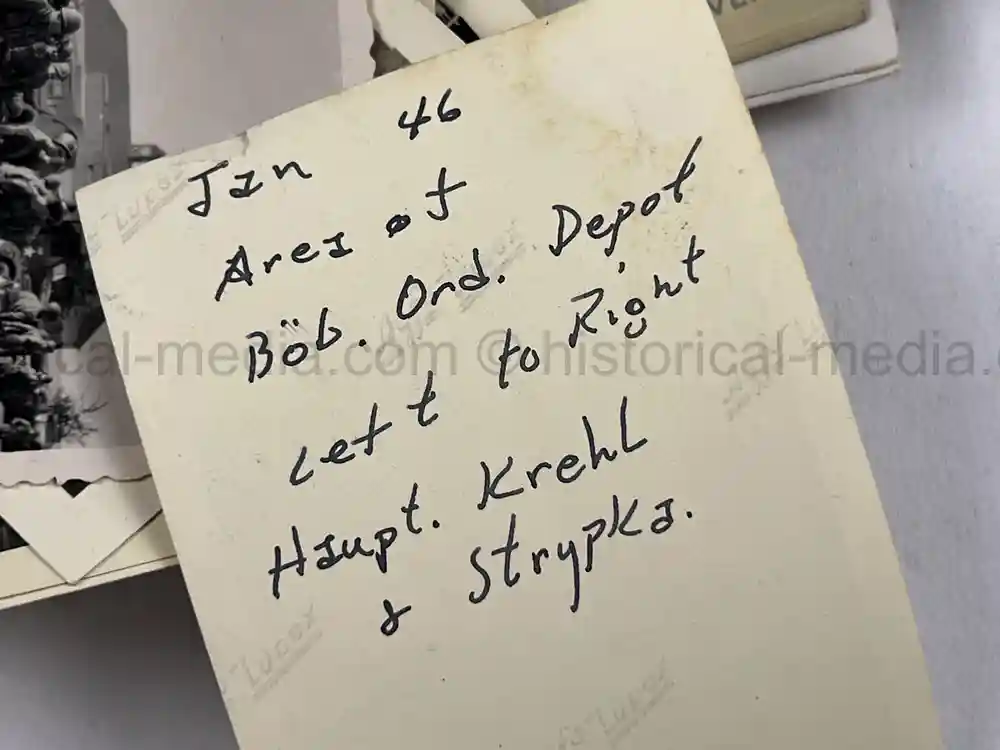 Jan 46
Area of
Böb. Ord. Depot
Left to Right
Haupt. Krehl
& Strypka.
cal-media.com © historical-media.
Lucox